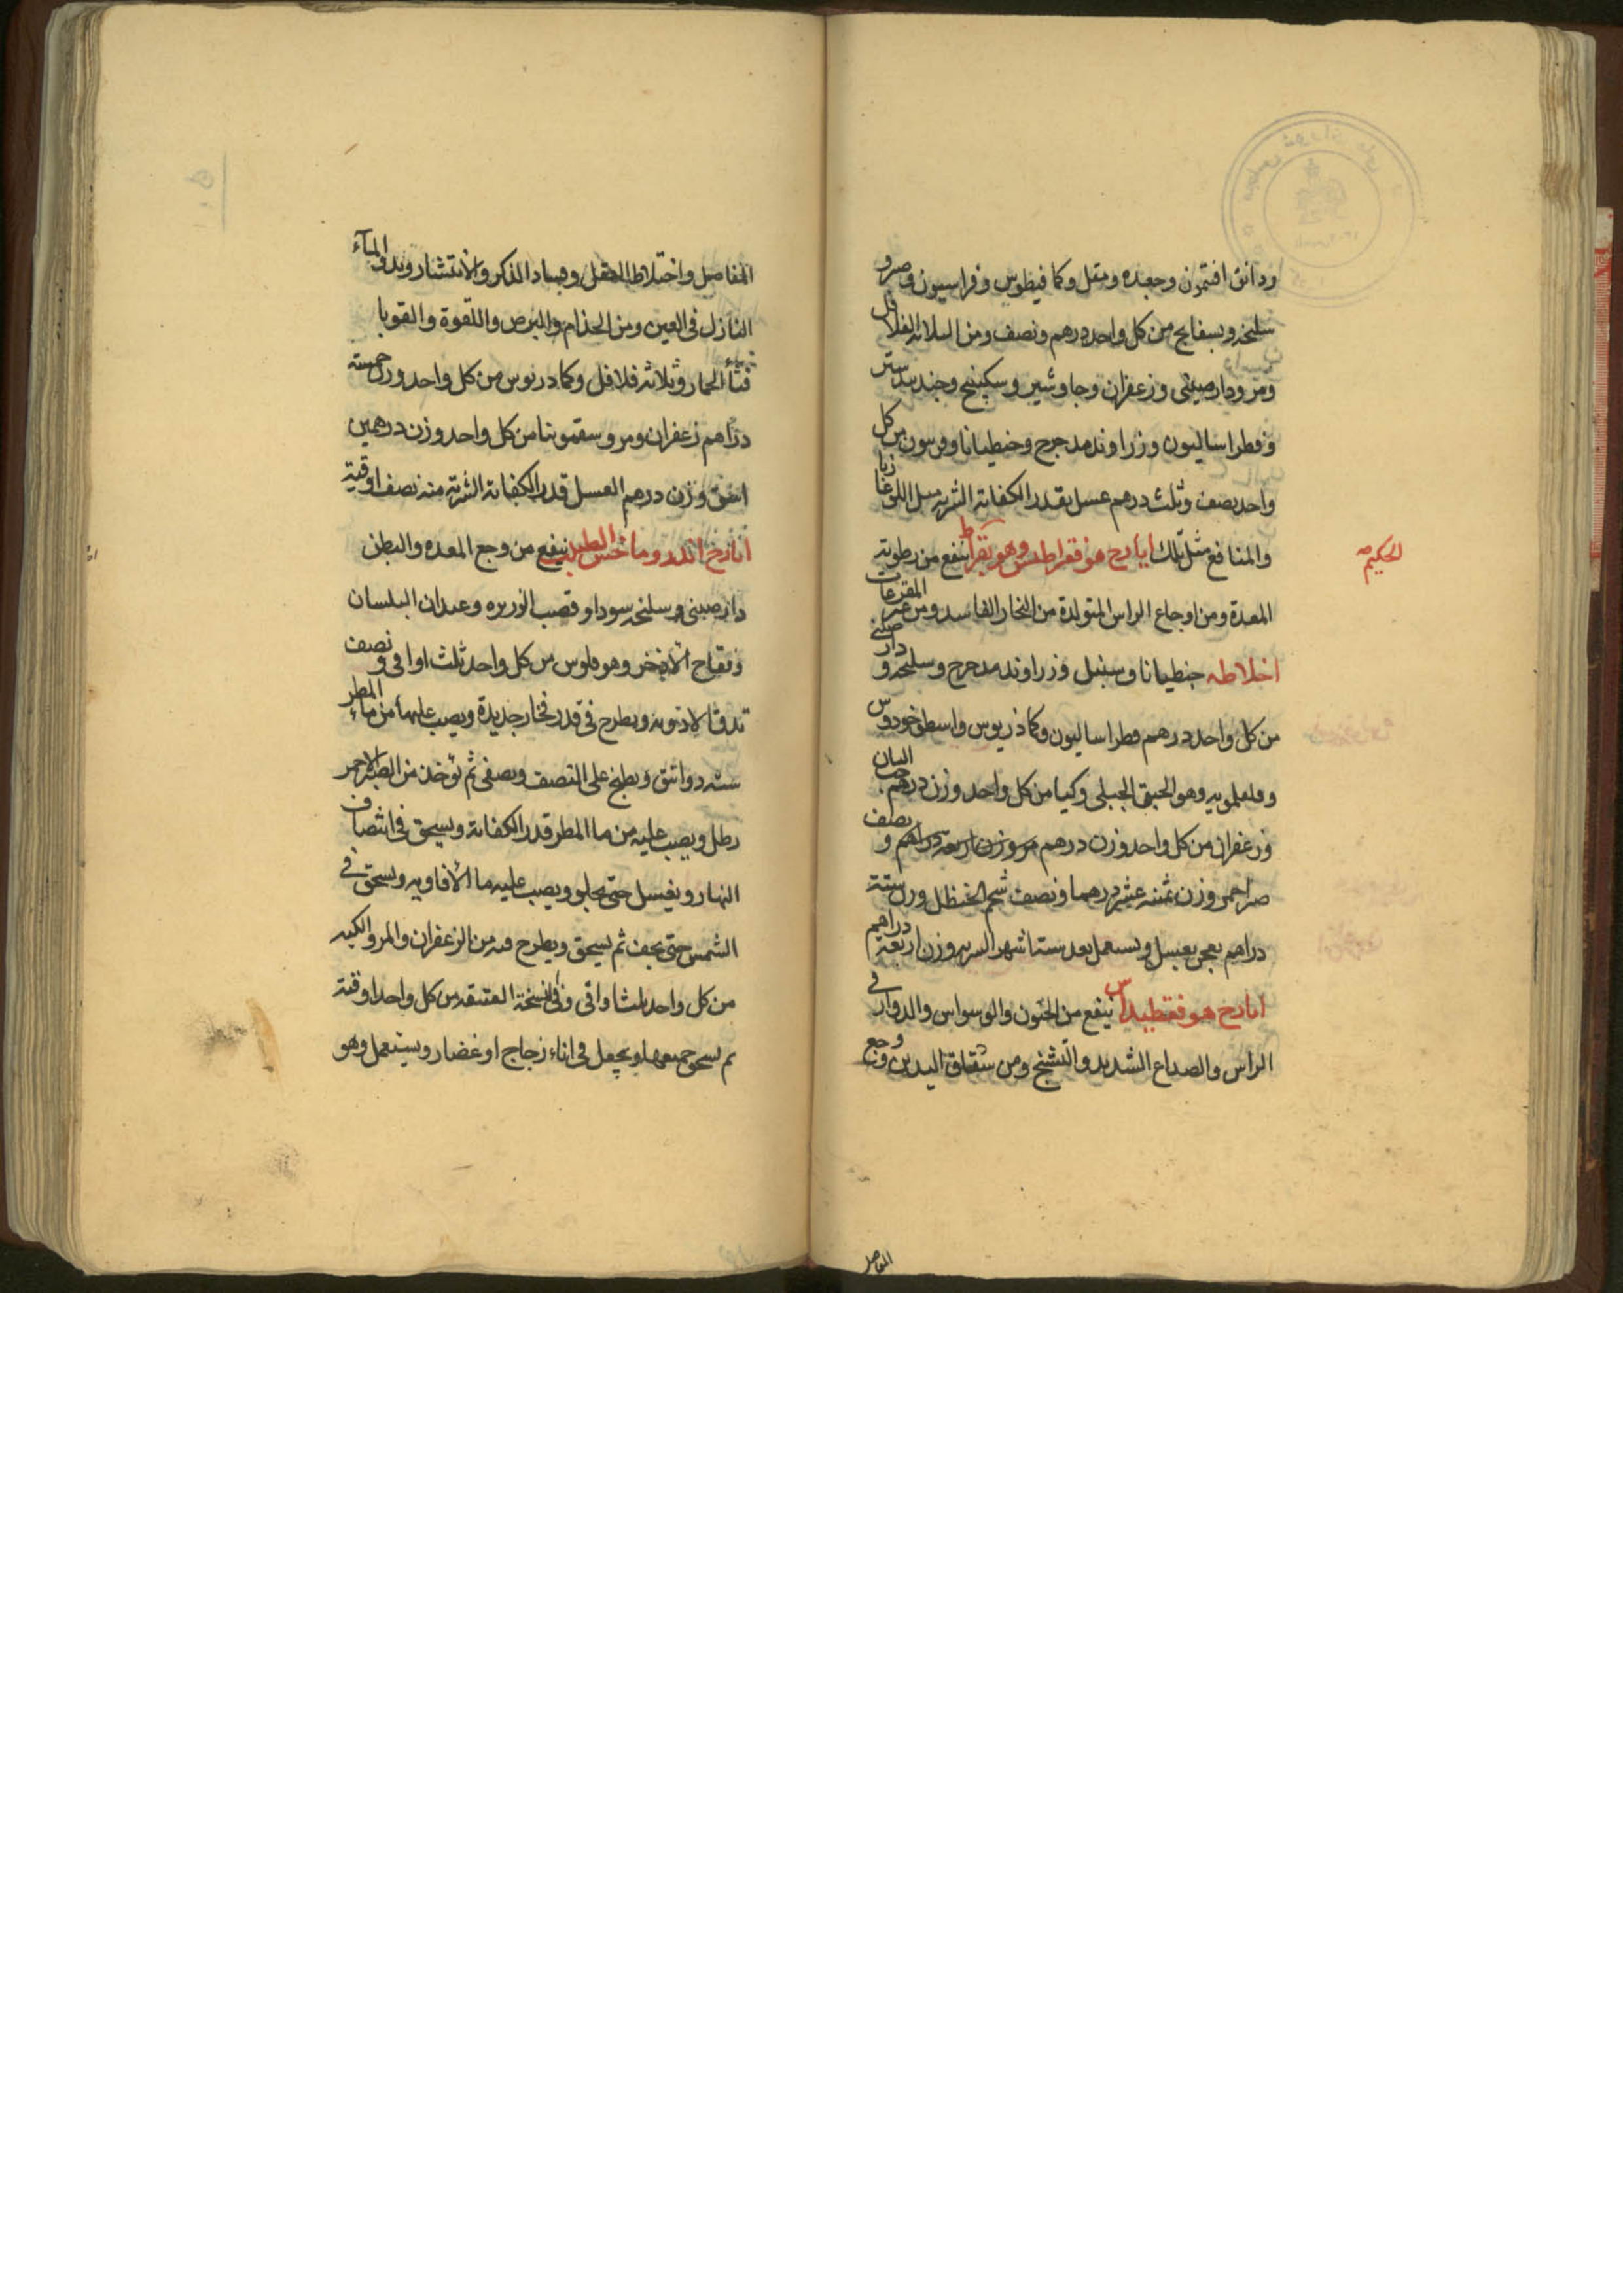 ودانق افتمون وجعده ومقل وكمافيطوس وفراسيون وصبر و
سليخه وبسفايج من كل واحد درهم ونصف ومن الثلاثه الفلافل
ومر ودارصيني وزعفران وجاوشير وسكبينج وجندبيدستر
وفطراساليون وزراوند مدحرج وجنطيانا من كل
واحد نصف وثلث درهم عسل بقدر الكفاية الشربه مثل اللوغاذيا
والمنافع مثل تلك ايارج هوفقراطس وهو بقراط ينفع من رطوبة
الحكيم
المعدة ومن اوجاع الراس المتولدة من البخار الفاسد ومن
اخلاطه جنطيانا وسنبل وزراوند مدحرج وسليخه و دارصيني
من كل واحد درهم فطراساليون وكماذريوس واسطوخودوس
وهو الحبق الجبلي وكيا من كل واحد وزن درهم حب البان
وزعفران من كل واحد وزن درهم مر وزن اربعة دراهم و نصف
صبر احمر وزن ثمنيه عشر درهما ونصف شحم الحنظل وزن ستة
دراهم يعجن بعسل ويستعمل بعد ستة اشهر الشربه وزن اربعة دراهم
ايارج هوفقطيداس ينفع من الجنون والوسواس والدوار في
الراس والصداع الشديد والتشنج ومن شقاق اليدين ووجع
المفاصل
المفاصل واختلاط العقل وفساد الذكر والانتشار وبدو الماء
النازل في العين ومن الجذام والبرص واللقوة والقوبا
قثاء الحمار وثلاثه فلافل وكمادريوس من كل واحد وزن خمسة
دراهم زعفران ومر وسقمونيا من كل واحد وزن درهمين
اشق وزن درهم العسل قدر الكفاية الشربة منه نصف اوقية
ايارج اندروماخس الطبيب ينفع من وجع المعده والبطن
دارصيني وسليخه سودا وقصب الذريره وعيدان البلسان
وفقاح الاذخر وهو فلوس من كل واحد ثلث اواقي ونصف
تدق الادويه ويطرح في قدر فخار جديدة ويصب عليها من ماء المطر
سته دوانق ويطبخ على النصف ويصفى ثم تؤخذ من الصبر الاحمر
رطل ويصب عليه من ما المطر قدر الكفاية ويسحق في انتصاف
النهار ويغسل حتى يحلو ويصب عليه ما الافاويه ويسحق في
الشمس حتى يجف ثم يسحق ويطرح فيه من الزعفران والمر والكيه
من كل واحد ثلث اواقي وفي نسخة العتيقه من كل واحد اوقية
ثم يسحق جميعها ويجعل في اناء زجاج او غضار ويستعمل وهو